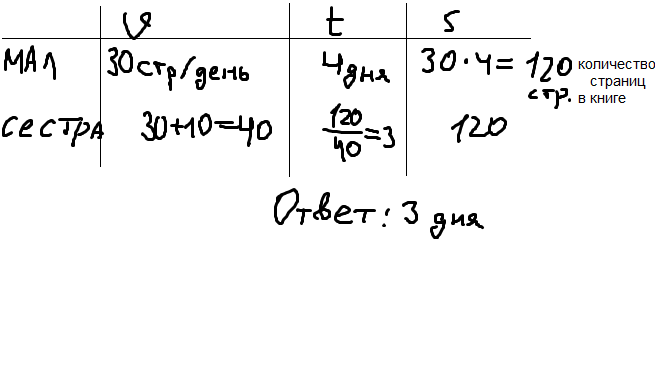 v t s
МАл 30 стр/день 4 дня 30 · 4 = 120 стр. количество страниц в книге
сестра 30+10=40 120/40=3 120
Ответ: 3 дня